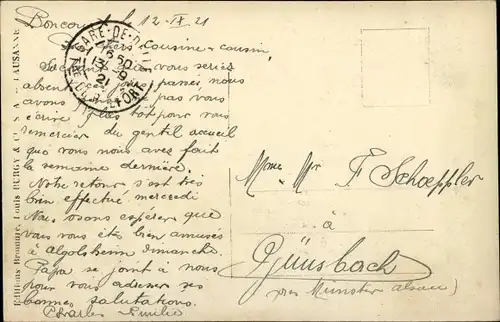 Boncourt le 12-IX-21
Mes chers cousine-cousin,
Sachant que vous seriez
absents ces jours passés nous
avons plus tôt pour vous
écrire
remercier du gentil accueil
que vous nous avez fait
la semaine dernière.
Notre retour s'est très
bien effectué mercredi
Nous osons espérer que
vous vous êtes bien amusés
à Algolsheim dimanche.
Papa se joint à nous
pour vous adresser ses
bonnes salutations.
Charles Emilie
GARE-DE-D
13-9
21
BELFORT
Mme Mr F. Schoeppler
à
Günsbach
près Munster Alsace)
Editions Bromure, Louis BURGY & C
LAUSANNE